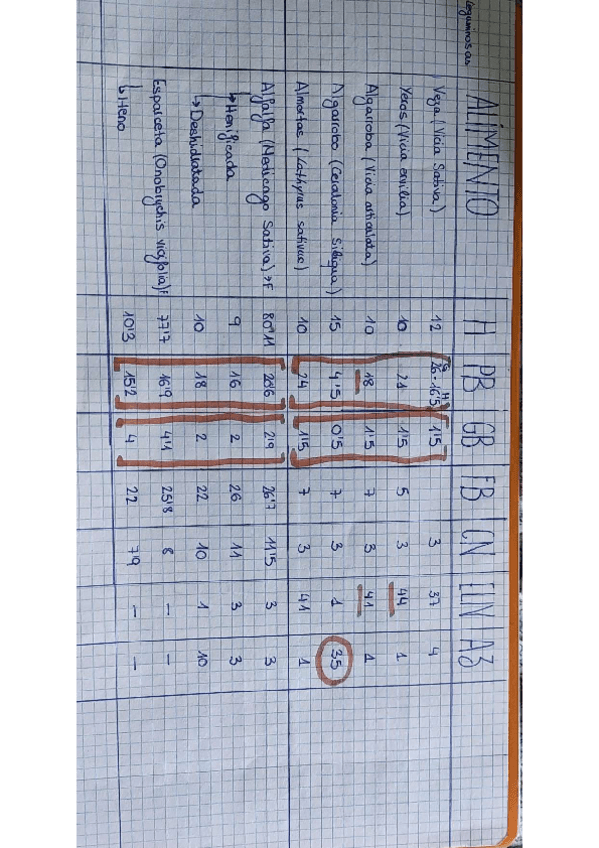 Leguminosas
ALIMENTO H PB GB FB CN ELN AZ
Veza (Vicia Sativa) 12 G 26-16'5 H 1'5 3 37 4
Yeros (Vicia ervilia) 10 21 1'5 5 3 44 1
Algarroba (Vicia articulata) 10 18 1'5 7 3 41 1
Algarrobo (Ceratonia Siliqua) 15 4'5 0'5 7 3 1 35
Almortas (Lathyrus sativus) 10 24 1'5 7 3 41 1
Alfalfa (Medicago Sativa) → F 80'11 20'6 2'9 26'7 11'5 3 3
↳ Henificada 9 16 2 26 11 3 3
↳ Deshidratada 10 18 2 22 10 1 10
Esparceta (Onobrychis viciifolia) F 77'7 16'9 4'1 25'8 8 - -
↳ Heno 10'3 15'2 4 22 7'9 - -